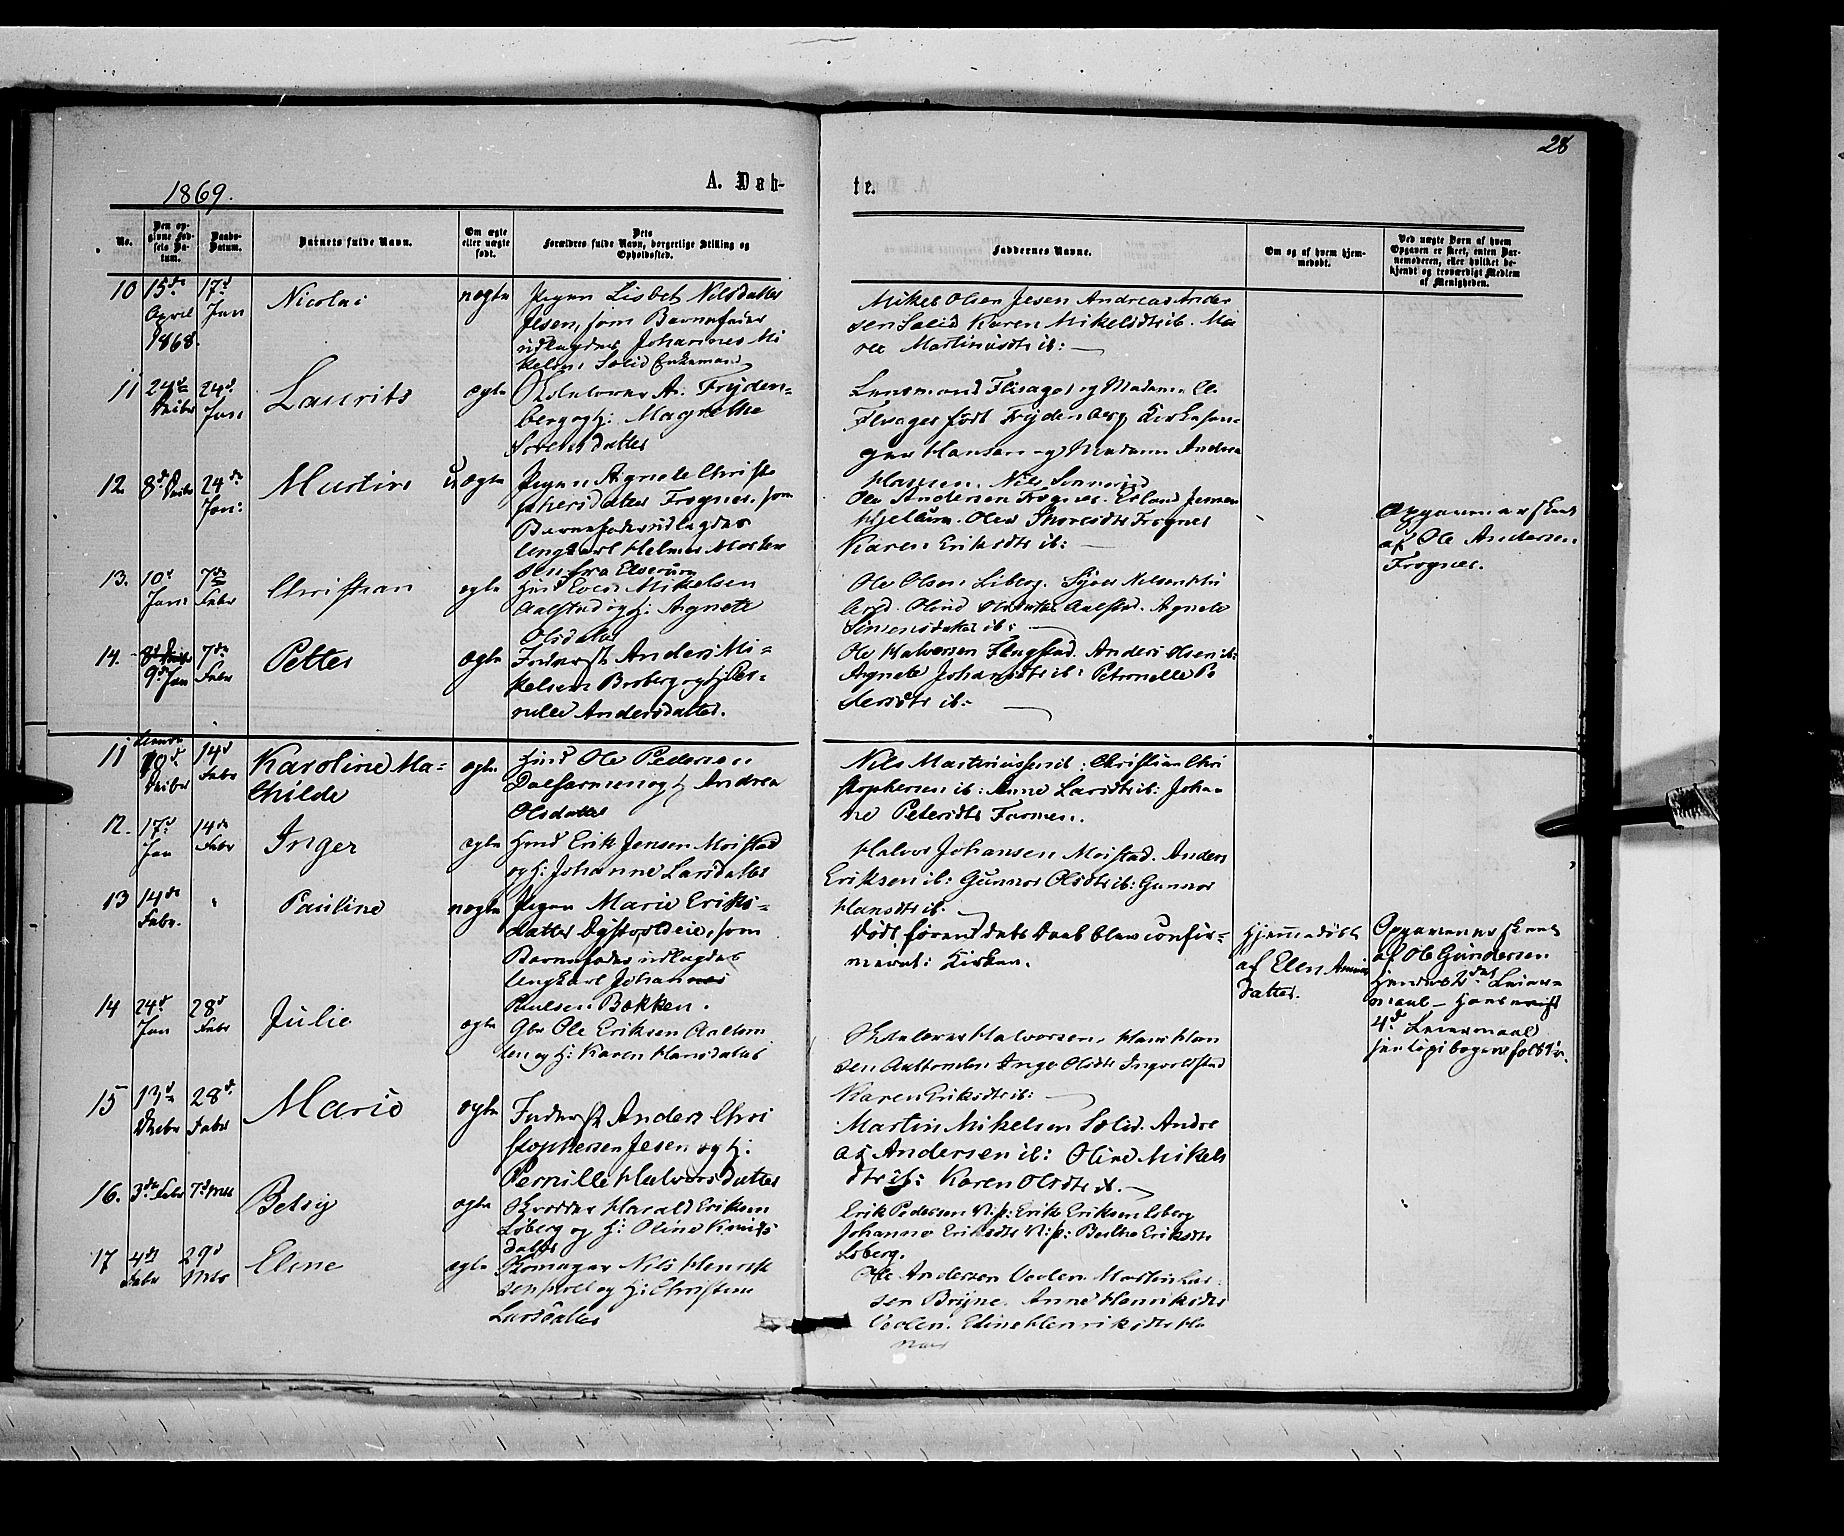 28
1869.
A. Døb-
te.
No.
Den opgivne Fødsels Datum.
Daabs-Datum.
Barnets fulde Navn.
Om ægte eller uægte født.
Dets Forældres fulde Navn, borgerlige Stilling og Opholdssted.
Faddernes Navne.
Om og af hvem hjemmedøbt.
Ved uægte Børn af hvem Opgaven er skeet, enten Barnemoderen, eller hvilket bekjendt og troværdigt Medlem af Menigheden.
10 15de April 1868. 17d Jan Nicolai uægte
Pigen Lisbet Nilsdatter
Jesen, som Barnefader
udlagdes Johannes Mi
kelsen Solid Enkemand
Mikel Olsen Jesen Andreas Ander
sen Solid Karen Mikelsdtr ib. Ma
ren Martinusdtr ib:
11 24de Dcibr 24d Jan Laurits ægte
Skolelærer A. Frijden-
berg og H: Magrethe
Sorensdatter
Lensmand Flisager og Madame
Flisager født Frijdenberg Kirkesan-
ger Hansen og Madame Andrea
Hansen. Nils
12 8d Dcibr 24de Jan: Martin uægte
Pigen Agnete Christo
fhersdatter Frogner, som
Barnefader udlagdes
Ungkarl Helmer Morten
sen fra Elverum
Ole Andersen Frogner. Erland Jensen
Kjellum. Olea Thoresdtr Frogner
Karen Eriksdtr ib:
Opgaven er skeet
af Ole Andersen
Frogner.
13. 10d Jan: 7de Febr Christian ægte
Hmd Even Mikelsen
Aalstad og H: Agnete
Olsdatter
Ole Olsen Liberg. Syver Nilsen
Aalstad. Agnete
Simensdatter ib:
14. 9d Jan 7de Febr Petter ægte
Inderst Anders Mi-
kelsen Broberg og H: Per-
nille Andersdatter.
Ole Halvorsen Flagstad. Anders Olsen ib:
Agnete Johansdtr ib: Petronelle Pe
dersdtr ib:
11 10d Dcibr 14d Febr Karoline Ma-
thilde ægte
Hmd Ole Pedersen
Dalfarmen og H Andrea
Olsdatter
Nils Martinussen ib: Christian Chri
stophersen ib: Anne Larsdtr ib: Johan-
ne Petersdtr Farmen.
12. 17d Jan 14de Febr Inger ægte
Hmd Erik Jensen Moistad
og H: Johanne Larsdatter
Halvor Johansen Moistad. Anders
Eriksen ib: Gunnor Olsdtr ib: Gunnor
Hansdtr ib.
13 14de Febr. " Pauline uægte
Pigen Marie Eriks-
datter Dystvoldeie, som
Barnefader udlagdes
Ungkarl Johannes
Paulsen Bakken.
Døde førend dets Daab blev confir-
meret i Kirken.
Hjemmedøbt
af Elen
datter.
Opgaven er skeet
af Ole Gundersen
Hendes 2det Leier-
maal – Hans
4d Leiermaal
14 24d Jan 28d Febr Julie ægte
Gbr Ole Eriksen Aaltom
ten og H: Karen Hansdatter
Skolelærer Halvorsen. Hans Han
sen Aaltomten Inger Olsdtr Ingvoldstad
Karen Eriksdtr ib:
15 13de Dcibr 28d Febr Marie ægte
Inderst Anders Chri
stophersen Jesen og H:
Pernille Halvorsdatter
Martin Mikelsen Solid. Andre
as Andersen ib: Oline Mikels
dtr ib: Karen Olsdtr ib.
16. 3de Febr 7d Mts Betsy ægte
Skrædder Harald Eriksen
Loberg og H: Oline Knuds
datter
Erik Pedersen N:p: Erik Eriksen Loberg
Johanne Eriksdtr N:p: Berthe Eriksdtr
Loberg.
17 4de Febr 29d Mts Eline ægte
Skomager Nils Henrik
sen og H: Christine
Larsdatter
Ole Andersen Veolen. Martin Lar
sen Bryne. Anne Henriksdtr
Veolen. Eline Henriksdtr